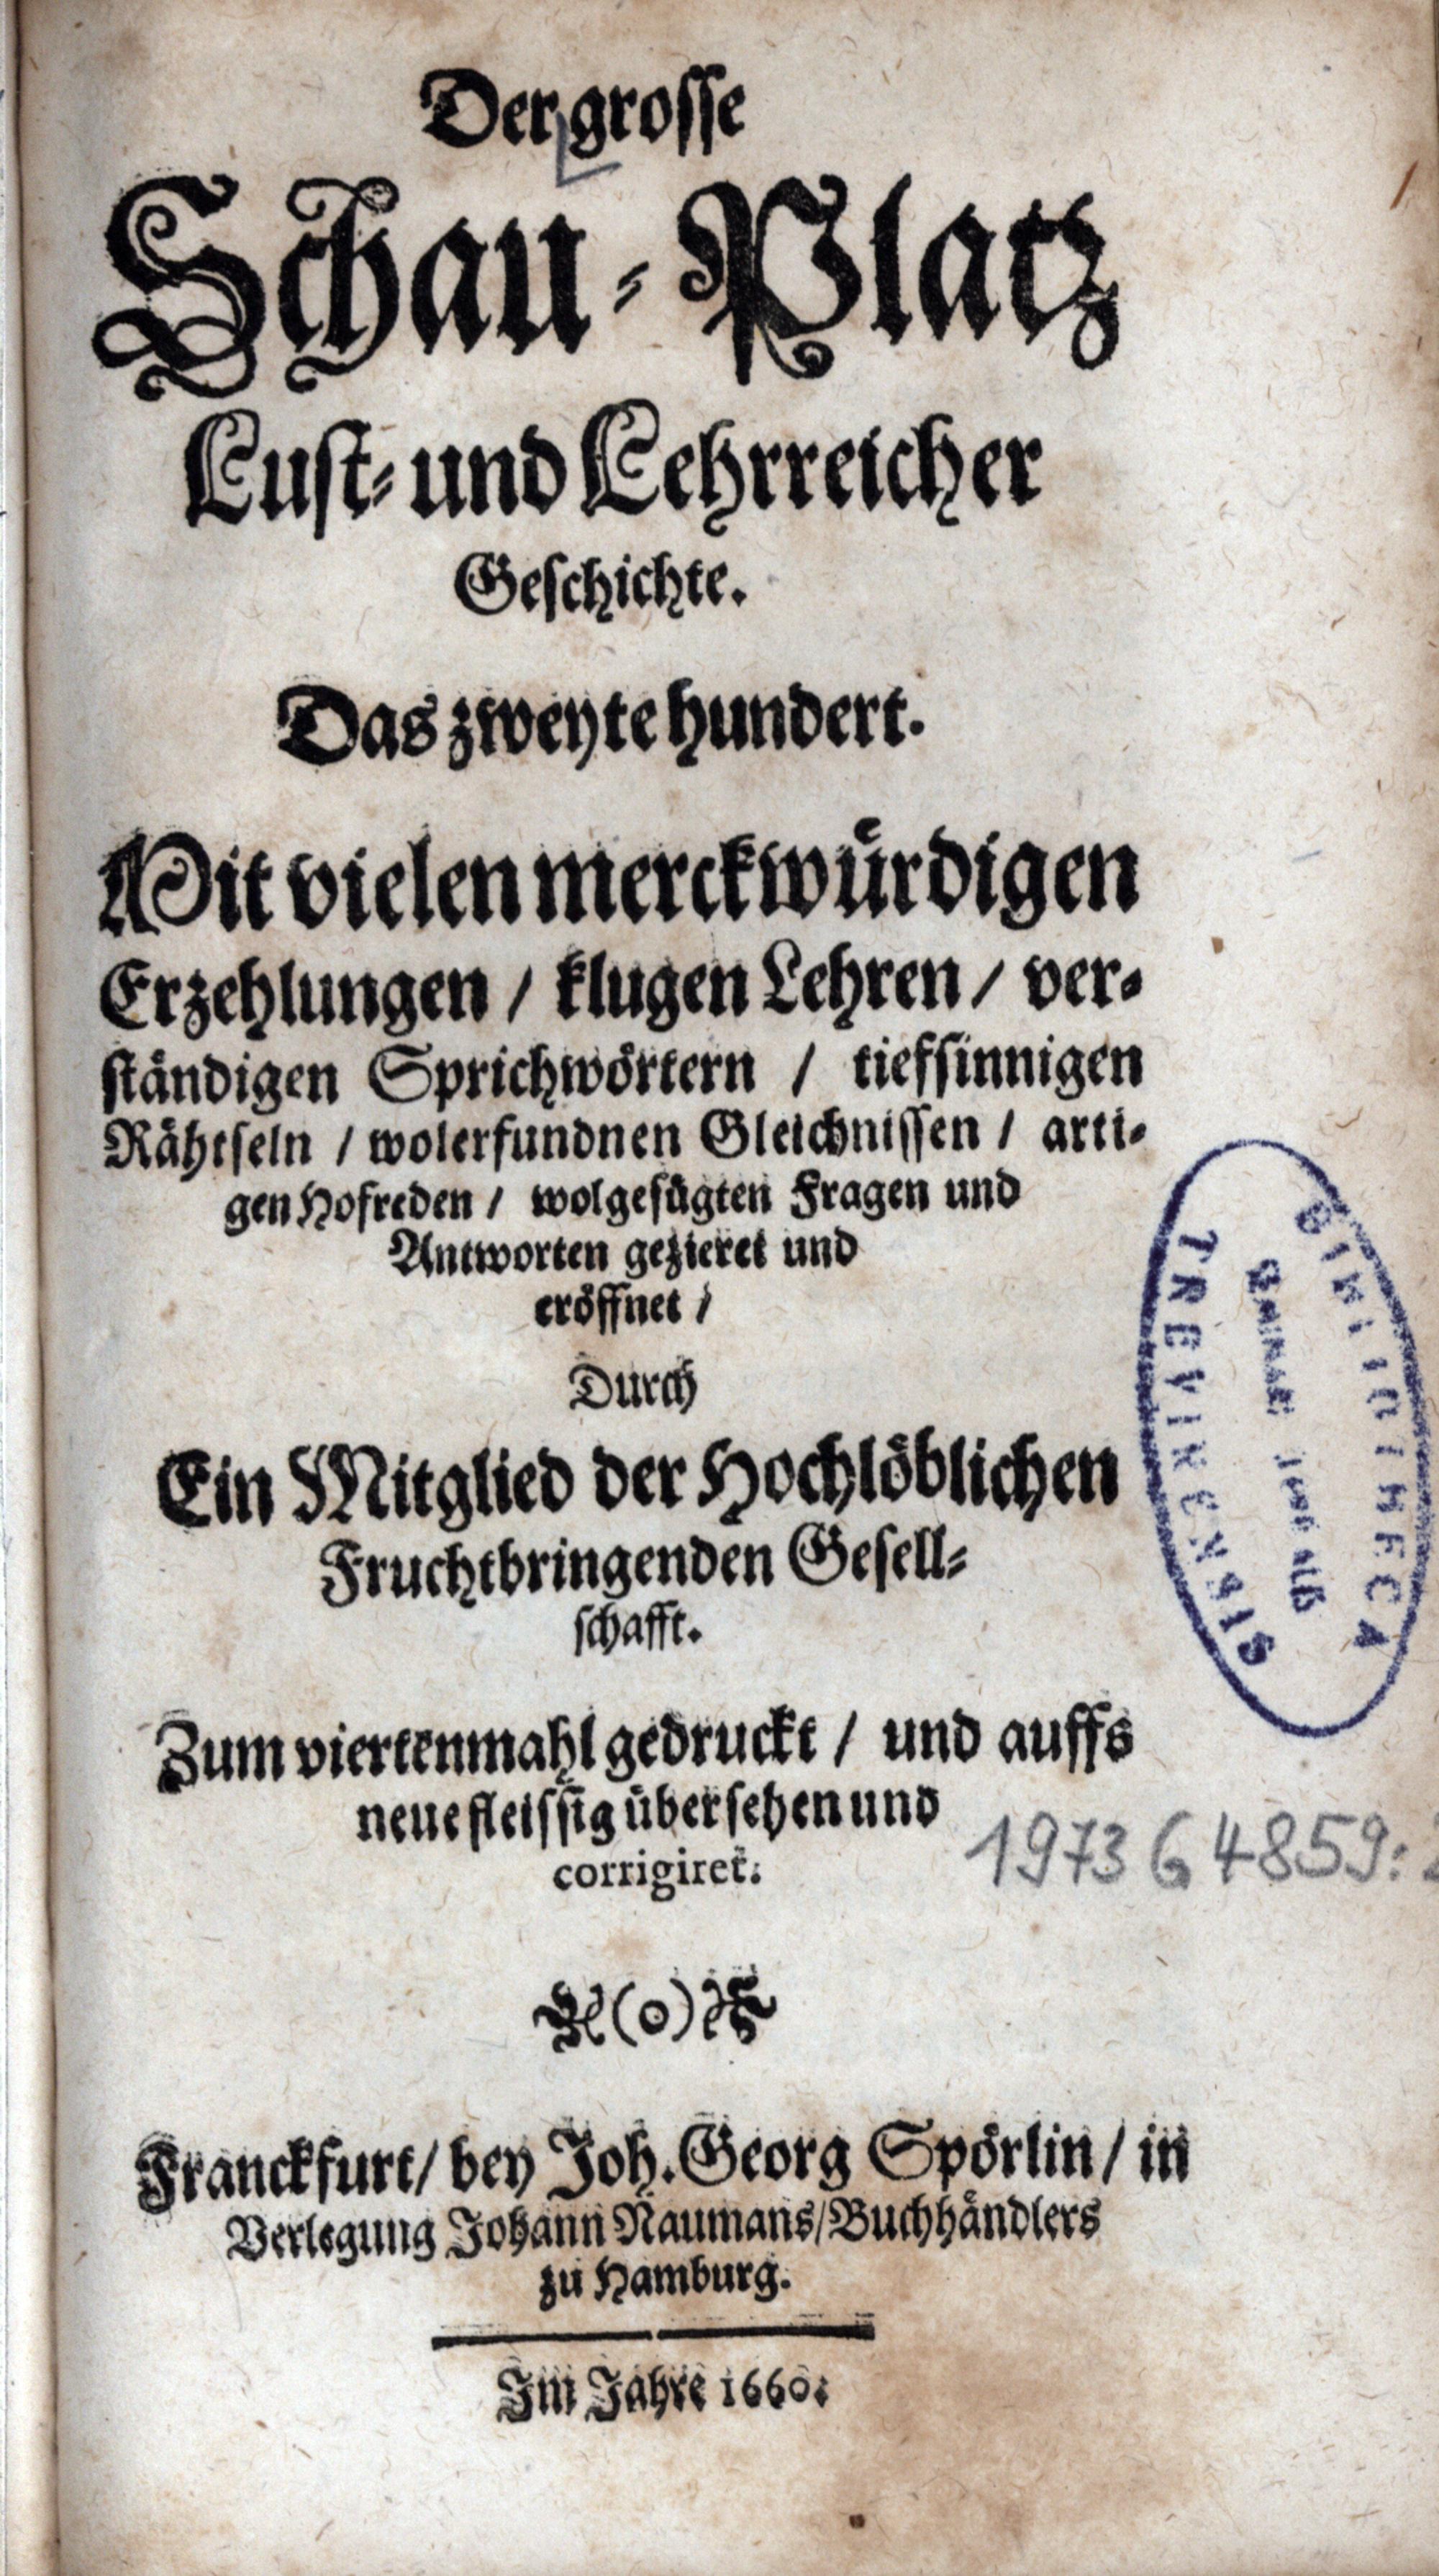 Der grosse
Schau-Platz
Lust- und Lehrreicher
Geschichte.
Das zweyte hundert.
Mit vielen merckwürdigen
Erzehlungen / klugen Lehren / ver-
ständigen Sprichwörtern / tiefsinnigen
Rähtseln / wolerfundnen Gleichnissen / arti-
gen Hofreden / wolgefügten Fragen und
Antworten gezieret und
eröffnet /
Durch
Ein Mitglied der Hochlöblichen
Fruchtbringenden Gesell-
schafft.
Zum viertenmahl gedruckt / und auffs
neue fleissig übersehen und
corrigiret.
(o)
Franckfurt / bey Joh. Georg Spörlin / in
Verlegung Johann Naumans / Buchhändlers
zu Hamburg.
Im Jahre 1660.
BIBLIOTHECA
TREVIRENSIS
1973 G 4859: